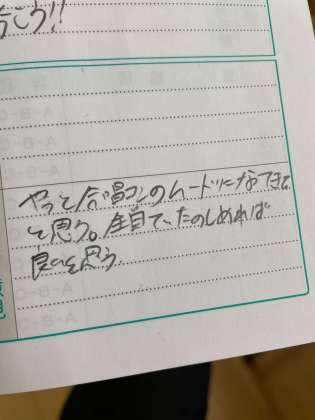 行こう!!
やっと合唱コンのムードになってきた
と思う。全員で、たのしめれば
良いと思う。